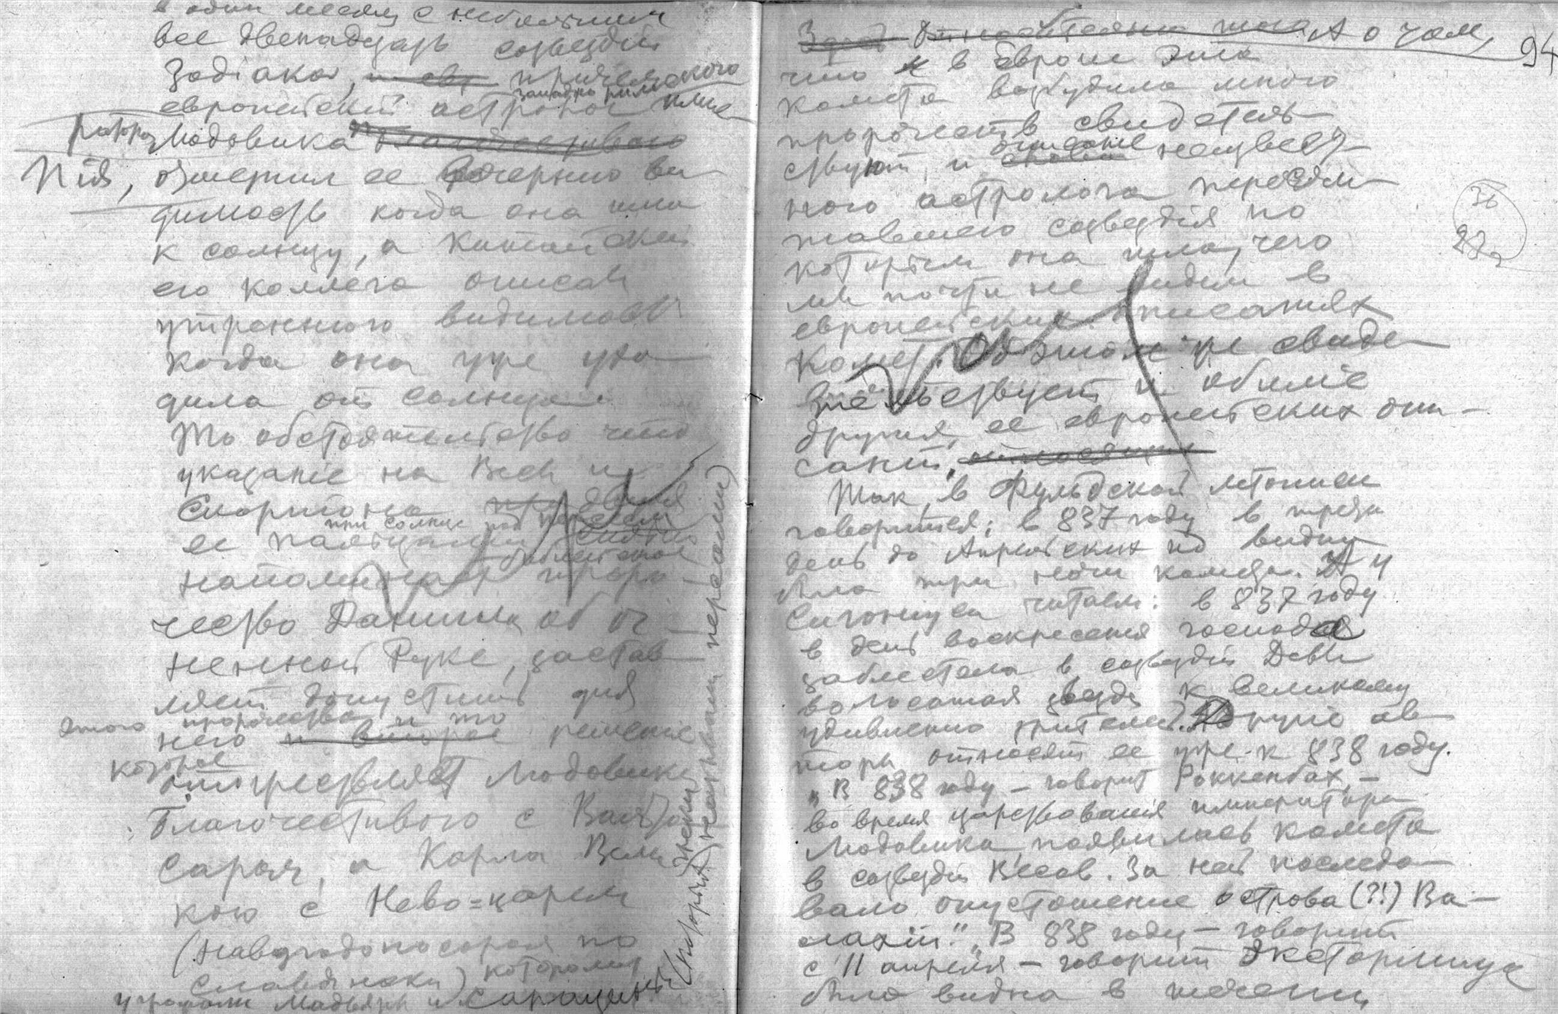 в один месяц с небольшим
все двенадцать созвездий
Зодіака, причем
европейскій астроном
западно римского
Людовика Благочестивого
Пія, отметил ее вечернюю ви-
димость когда она шла
к солнцу, а китайскій
его коллега описал
утреннюю видимость
когда она уже ухо-
дила от солнца.
То обстоятельство что
указаніе на Весы и
Скорпіона
при солнце под
ее пальцами
напоминает проро-
чество Даниила об ог-
ненной Руке, застав-
ляет допустить для
этого пророчества и то
него и второе решение
которое
отождествляет Людовика
Благочестивого с Валта-
саром, а Карла Вели-
кого с Нево=царем
(Навуходоносором по
славянски) которому
угрожали Мадьяры и Сарацины
94
А о том,
что и в Европе эта
комета возбудила много
пророчеств свидетель-
ствуют и описание неизвест-
ного астролога пересчи-
тавшего созвездія по
которым она шла, чего
мы почти не видим в
европейских описаніях
комет. Об этом же свиде-
тельствует и обиліе
других ее европейских опи-
саній.
36
27а
Так в Фульдской летописи
говорится: в 837 году в третій
день до Апрельских ид видна
была три ночи комета. А у
Сигоніуса читаем: в 837 году
в день воскресенія господа
заблестела в созвездіи Девы
волосатая звезда к великому
удивленію зрителей. Другіе ав-
торы относят ее уже к 838 году.
„В 838 году — говорит Роккенбах, —
во время царствованія императора
Людовика появилась комета
в созвездіи Весов. За ней последо-
вало опустошение острова (?!) Ва-
лахіи." „В 838 году — говорит
с 11 апреля — говорит Экстормиус
была видна в теченіи